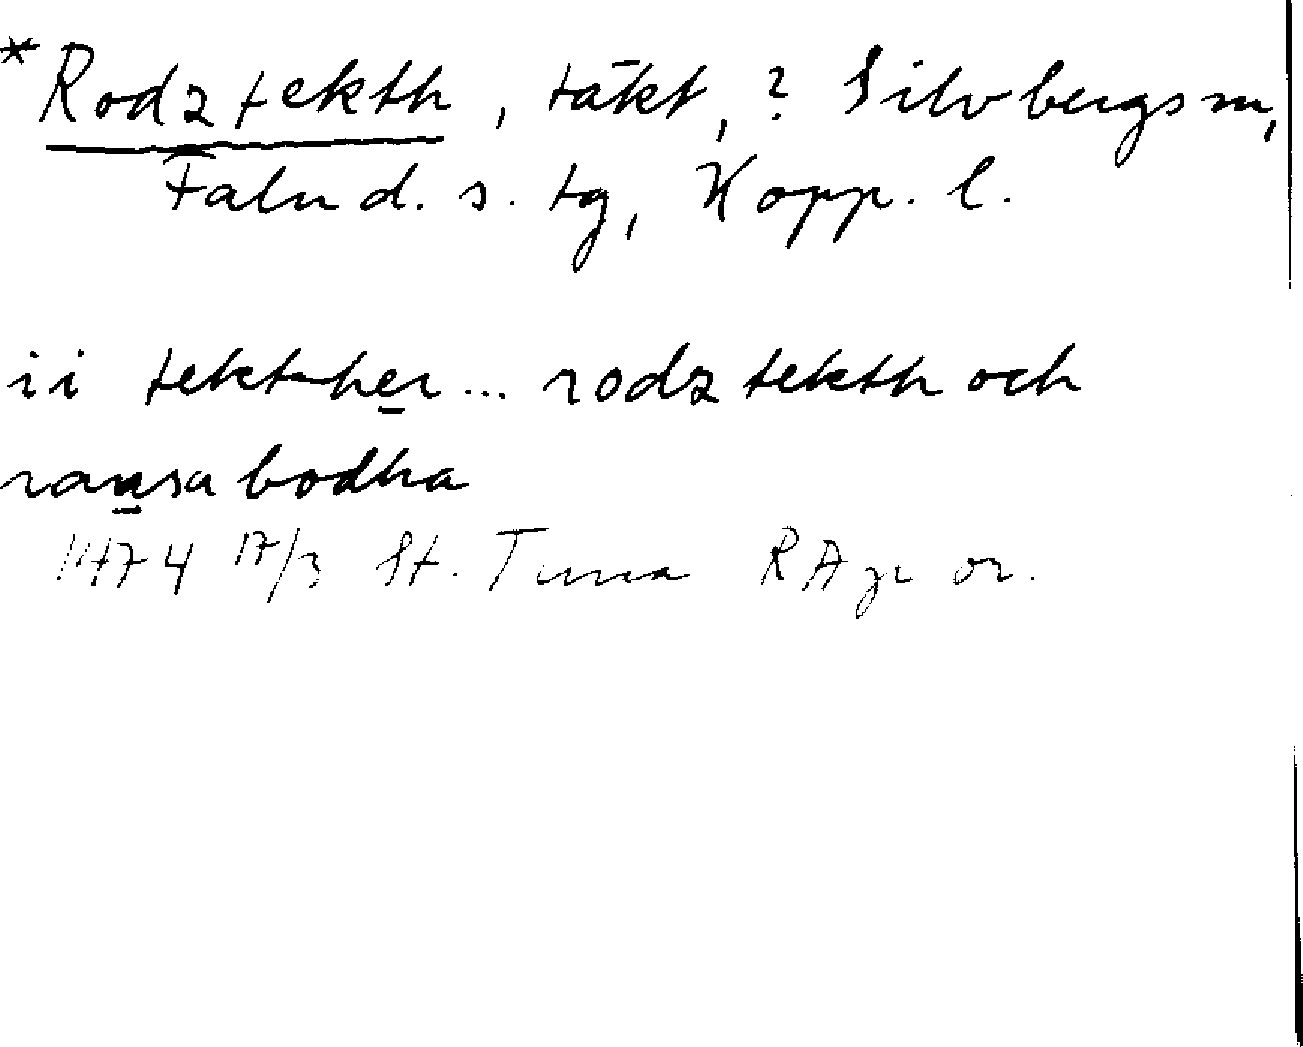 *Rodztekth, täkt, ? Silvbergs sn,
Falu d. s. tg, Kopp. l.
ii tekther... rodztekth och
ransa bodha
1474 17/3 St. Tuna RAp or.